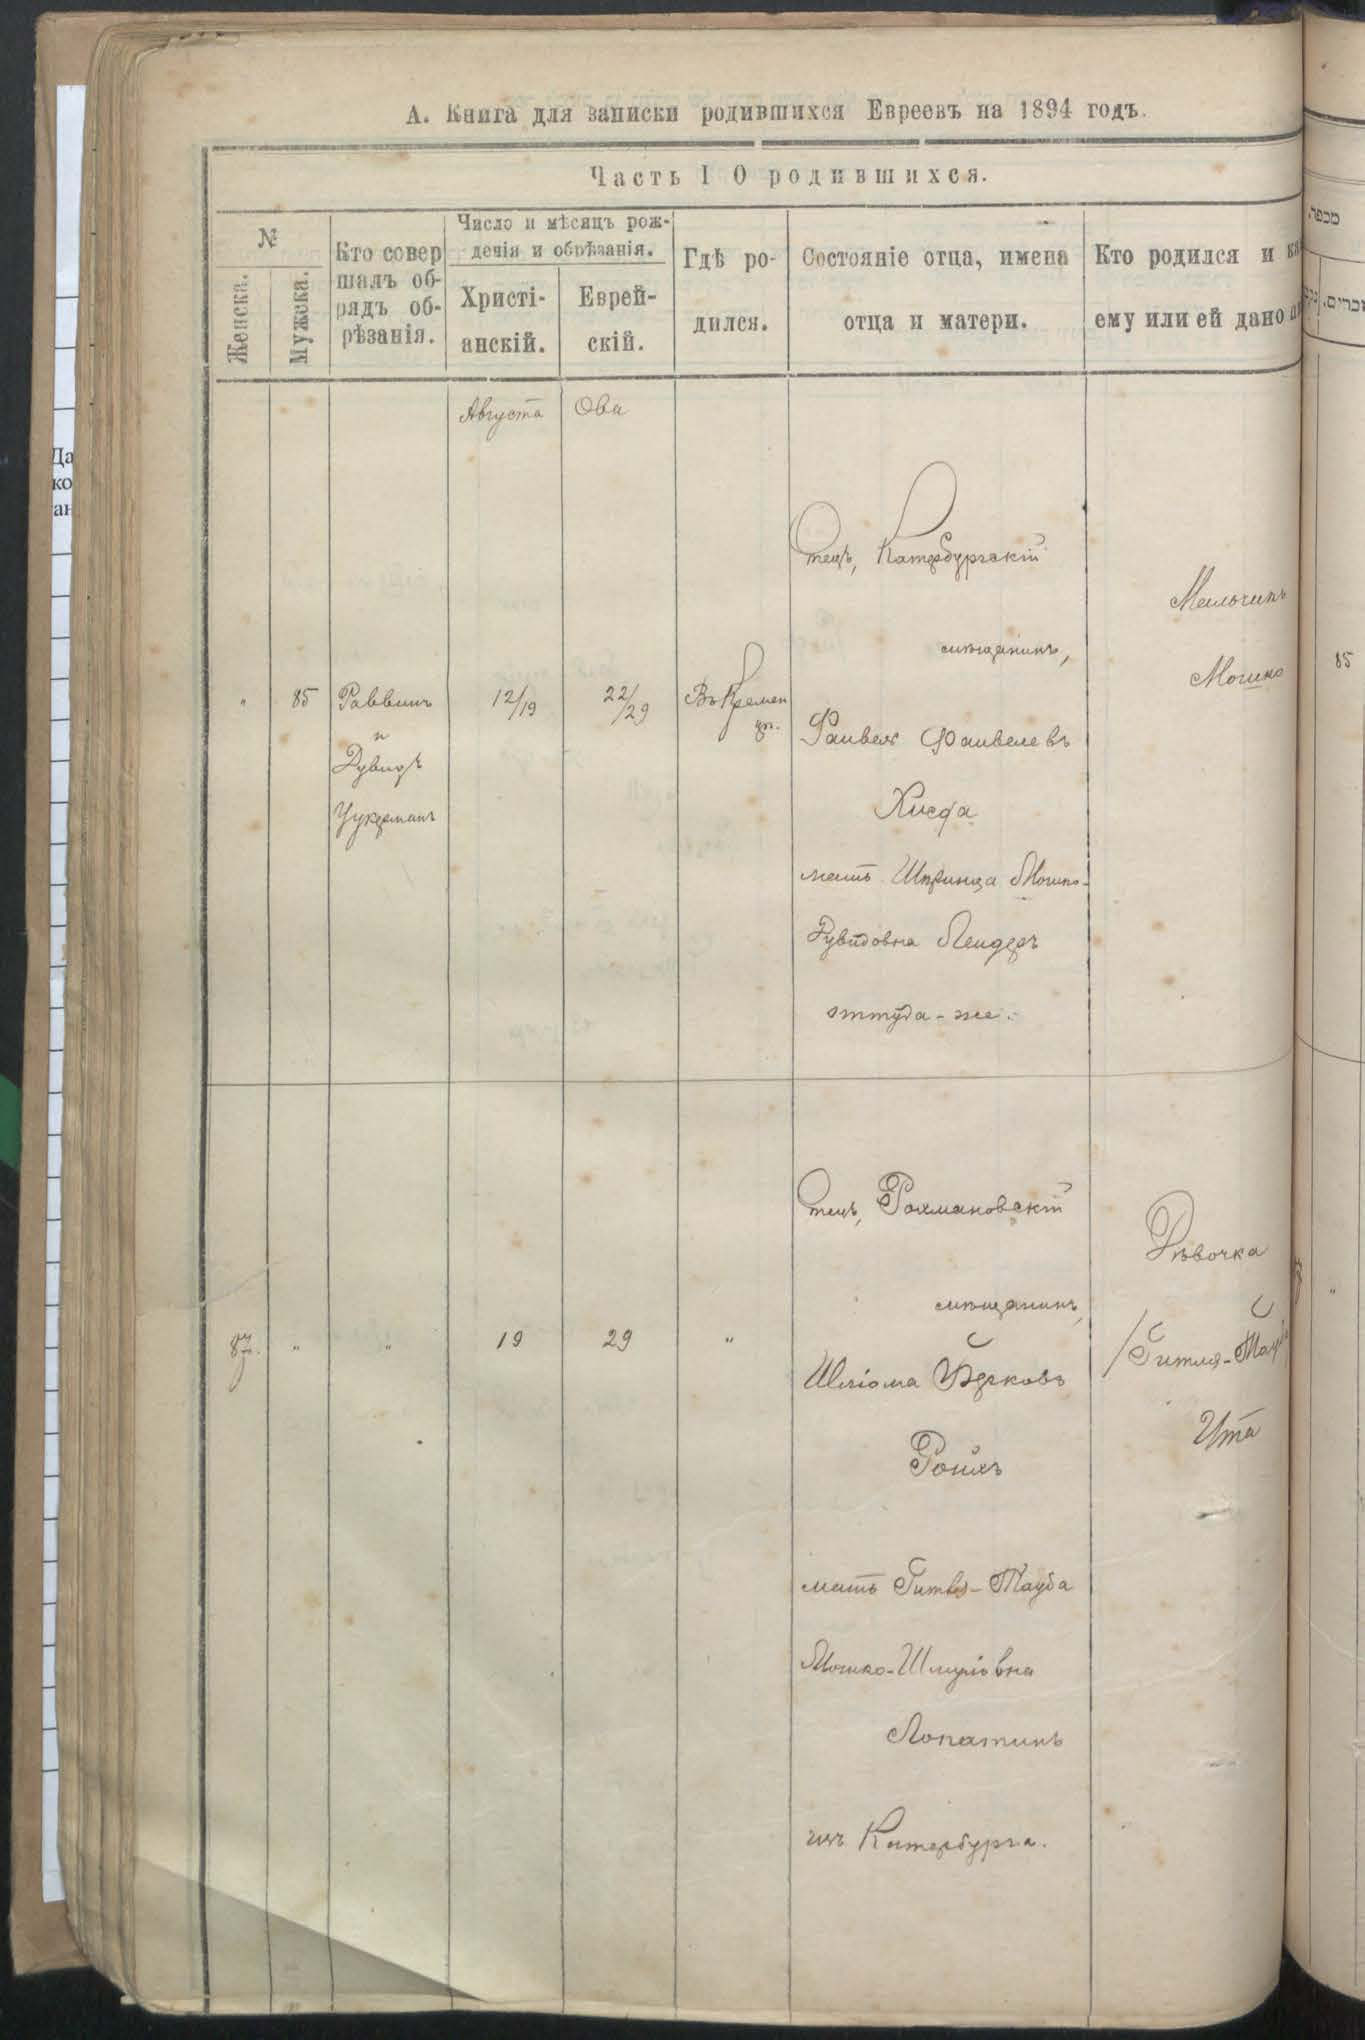 А. Книга для записки родившихся Евреевъ на 1894 годъ.
Часть I О родившихся.
№
Женска.
Мужска.
Кто совер
шалъ об-
рядъ об-
рѣзанія.
Число и мѣсяцъ рож-
денія и обрѣзанія.
Христі-
анскій.
Еврей-
скій.
Гдѣ ро-
дился.
Состояніе отца, имена
отца и матери.
Кто родился и
ему или ей дано
Августа
Ова
"
85
Раввинъ
и
Дувидъ
Цукерманъ
12/19
22/29
Въ Кремен
цѣ.
Отецъ, Катербургскій
мѣщанинъ,
Файвель Файвелевъ
Хисда
мать Шпринца Мошко-
Дувидовна Лендеръ
оттуда-же.
Мальчикъ
Мошко
87.
"
"
19
29
"
Отецъ, Рохмановскій
мѣщанинъ,
Шліома Берковъ
Ройхъ
мать Гитля-Тауба
Мошко-Шмуліовна
Лопатинъ
изъ Катербурга.
Дѣвочка
/Гитля-
Ита
מספר.
זכרים.
85
"
Да
ко
ан